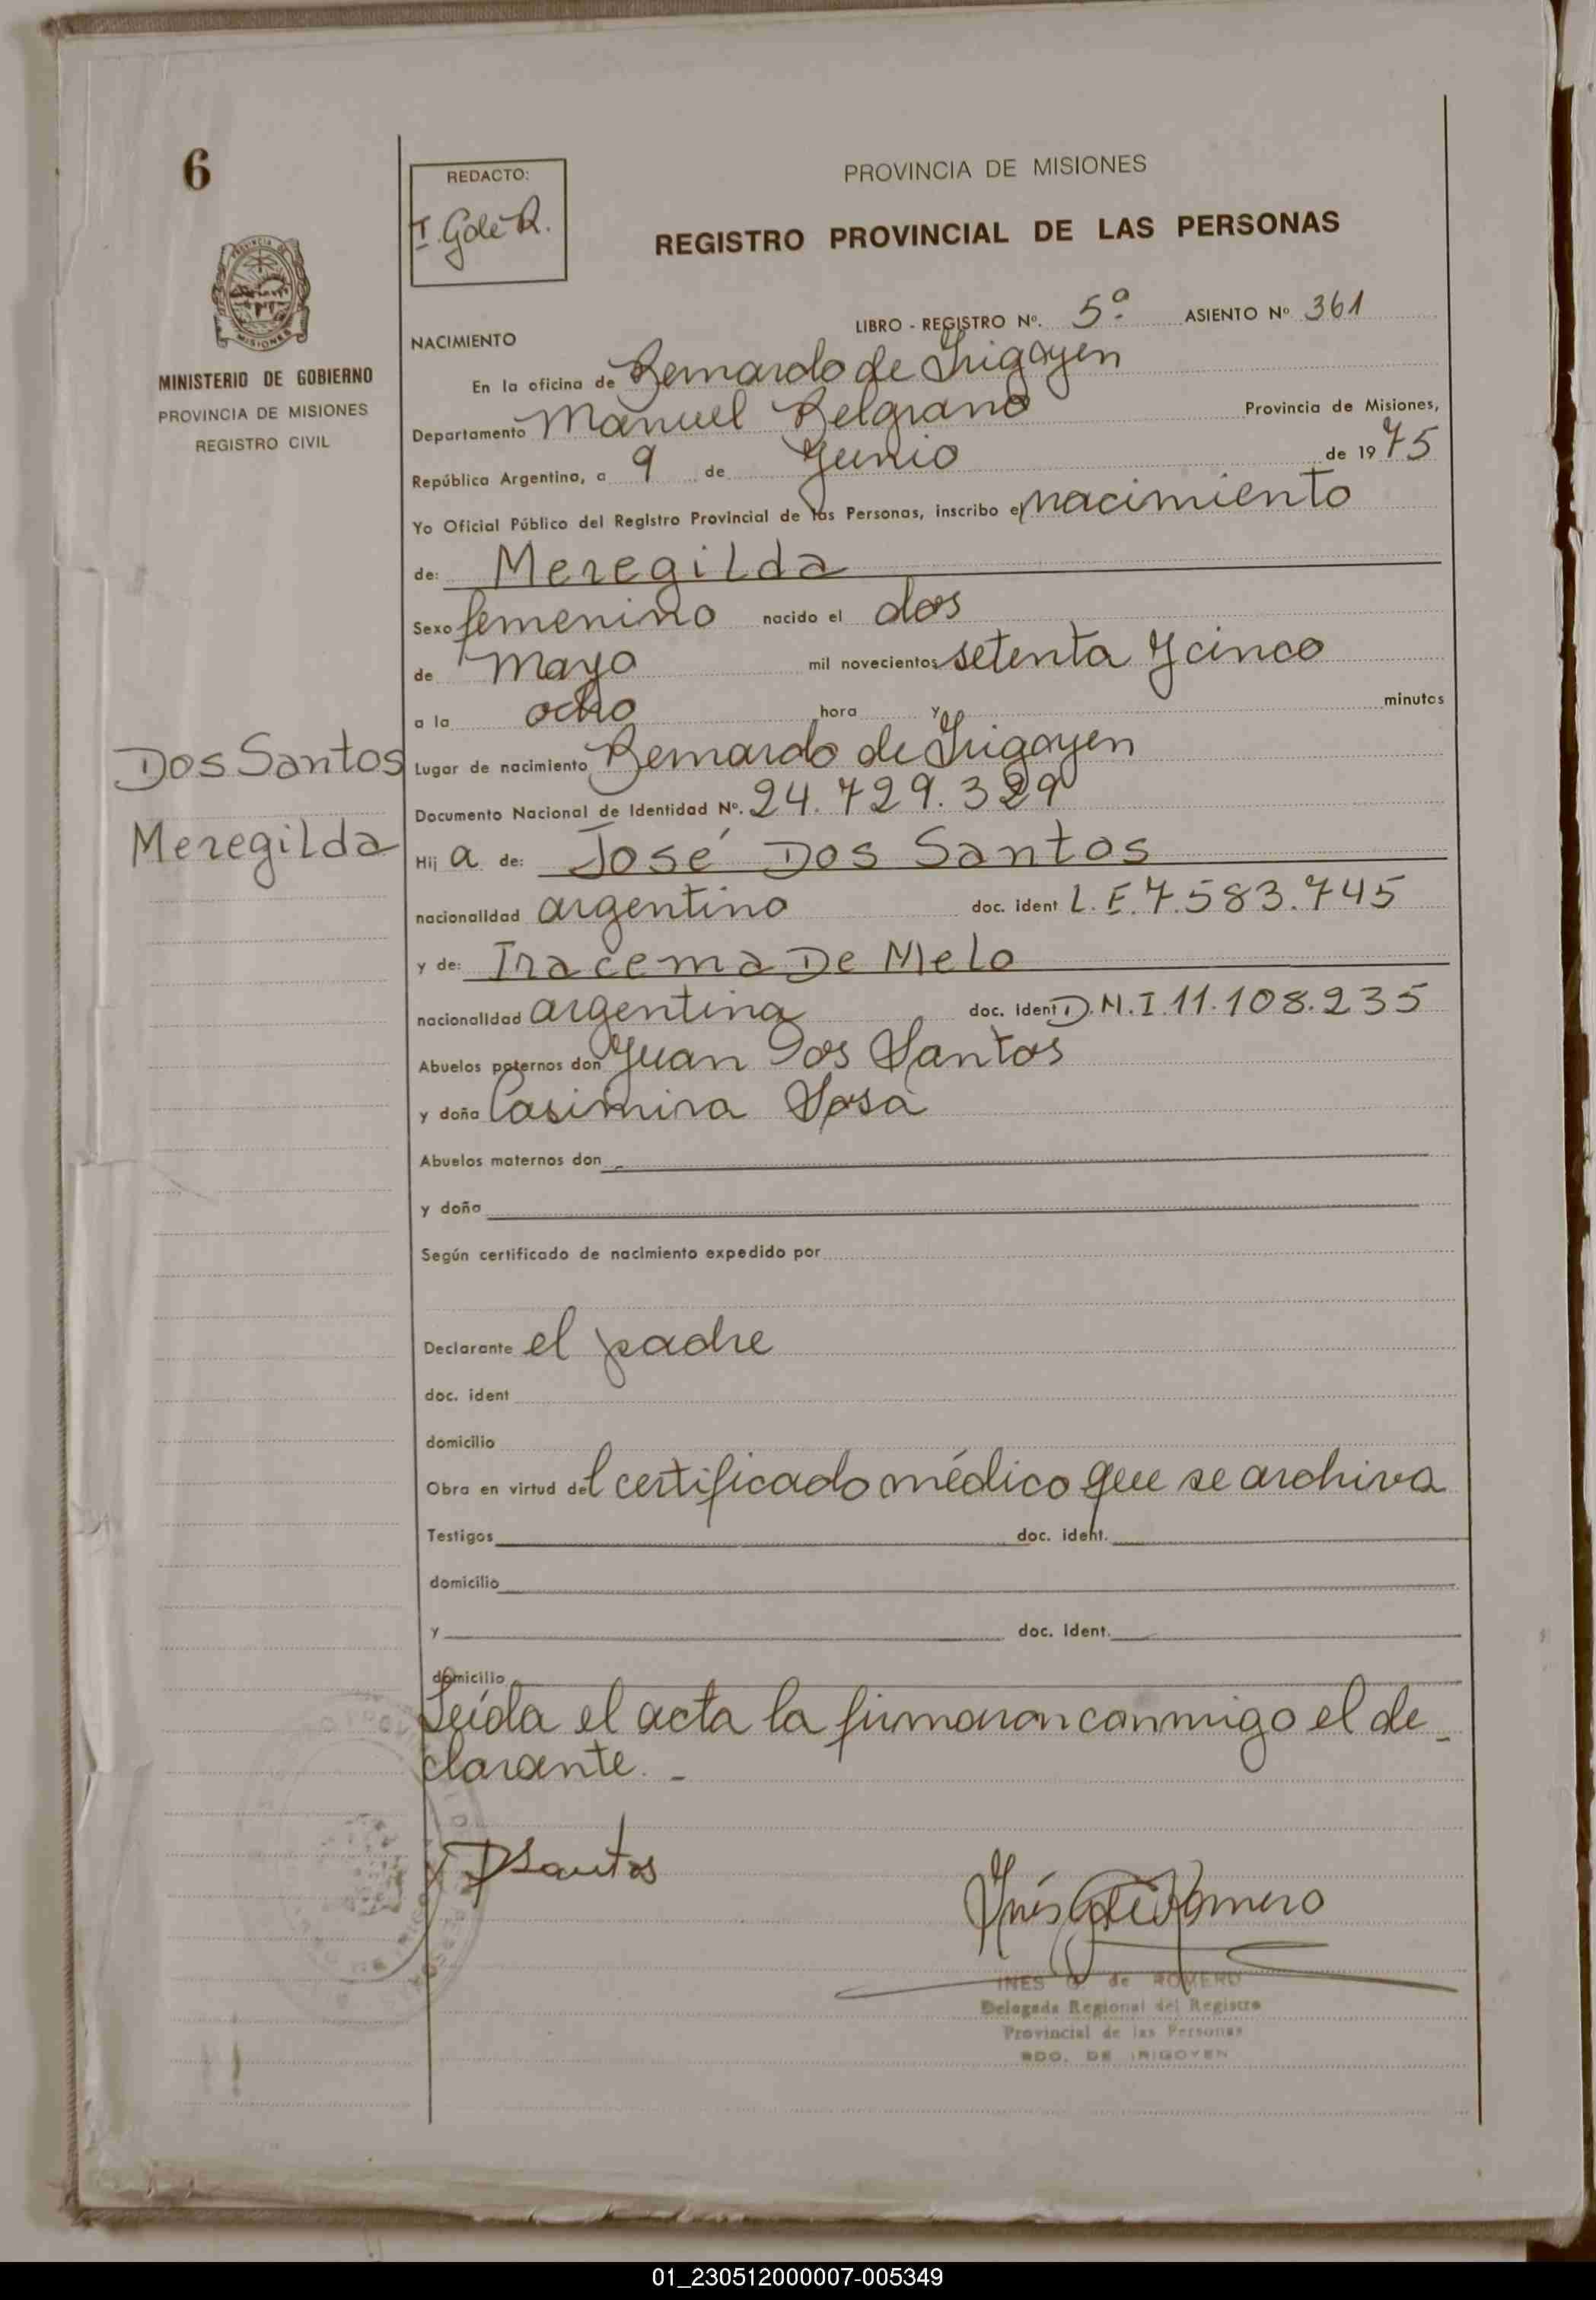 6
REDACTO:
I. Golé R.
PROVINCIA DE MISIONES
REGISTRO PROVINCIAL DE LAS PERSONAS
PROVINCIA DE MISIONES
MINISTERIO DE GOBIERNO
PROVINCIA DE MISIONES
REGISTRO CIVIL
LIBRO - REGISTRO Nº. 5º ASIENTO Nº 361
NACIMIENTO
En la oficina de Bernardo de Irigoyen
Departamento Manuel Belgrano Provincia de Misiones,
República Argentina, a 9 de Junio de 1975
Yo Oficial Público del Registro Provincial de las Personas, inscribo el nacimiento
de: Meregilda
Sexo femenino nacido el dos
de mayo mil novecientos setenta y cinco
a la ocho hora y minutos
Dos Santos
Meregilda
Lugar de nacimiento Bernardo de Irigoyen
Documento Nacional de Identidad Nº. 24.729.329
Hij a de: José Dos Santos
nacionalidad argentino doc. ident L.E.7.583.745
y de: Iracema De Melo
nacionalidad argentina doc. ident D.N.I.11.108.235
Abuelos paternos don Juan Dos Santos
y doña Casimira Sosa
Abuelos maternos don
y doña
Según certificado de nacimiento expedido por
Declarante el padre
doc. ident
domicilio
Obra en virtud del certificado médico que se archiva
Testigos doc. ident.
domicilio
y doc. Ident.
domicilio
Leída el acta la firmaron conmigo el de_
clarante._
DSantos
Inés Golé Romero
INES G. de ROMERO
Delegada Regional del Registro
Provincial de las Personas
BDO. DE IRIGOYEN
01_230512000007-005349